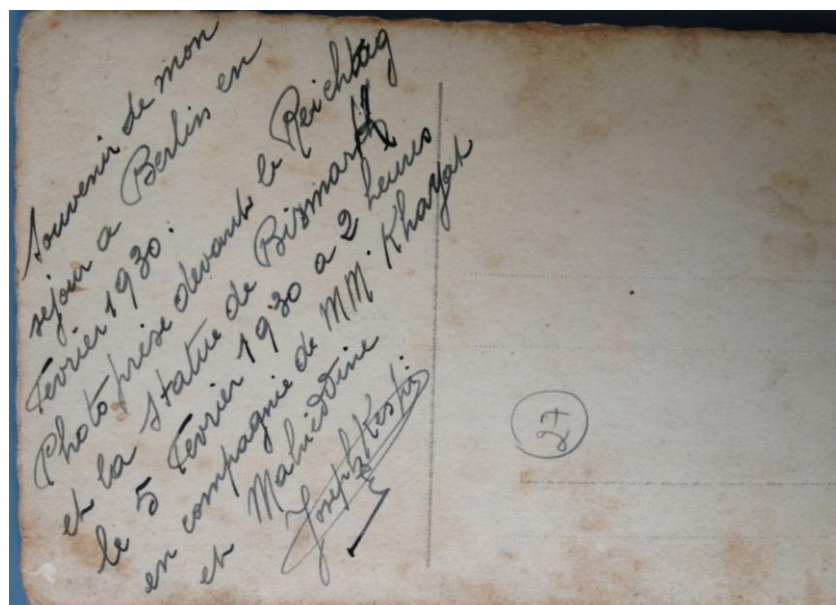 Souvenir de mon
sejour a Berlin en
Fevrier 1930:
Photo prise devant le Reichtag
et la statue de Bismark
le 5 Fevrier 1930 a 2 heures
en compagnie de MM. Khayat
et Mahieddine
Joseph
27